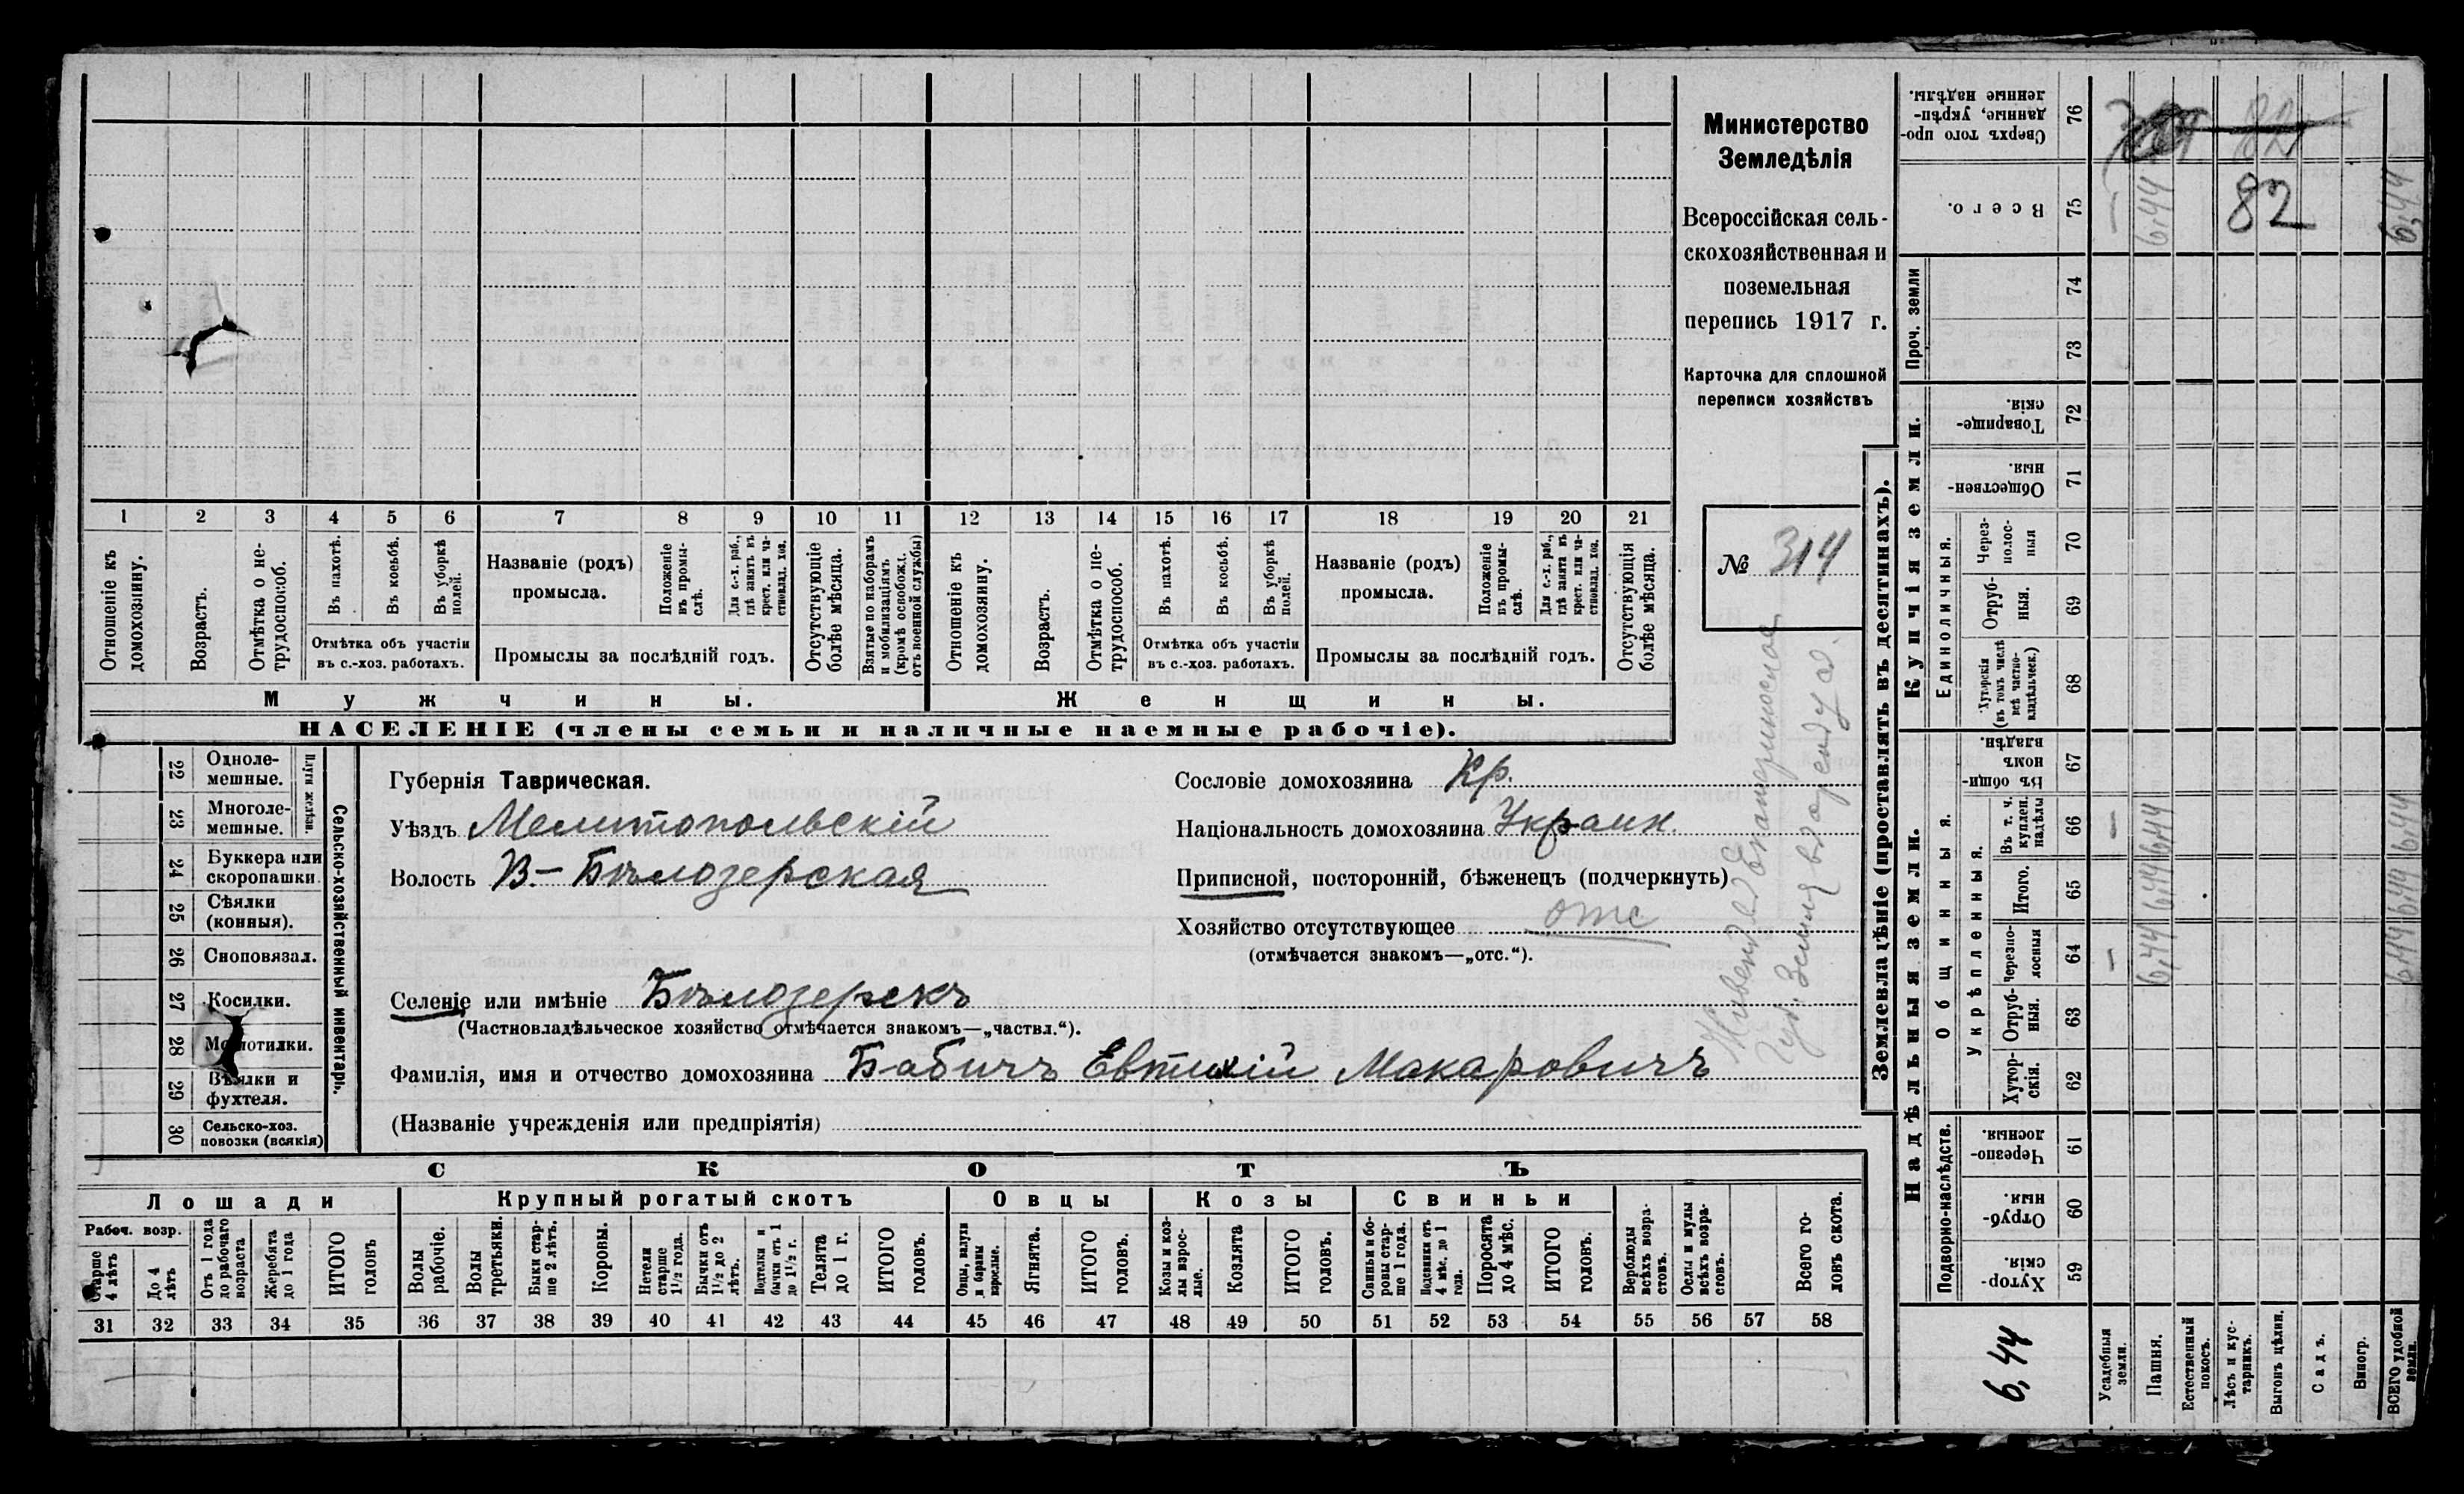 Министерство
Земледѣлія
Всероссійская сель-
скохозяйственная и
поземельная
перепись 1917 г.
Карточка для сплошной
переписи хозяйствъ
№ 314
1 2 3 4 5 6 7 8 9 10 11 12 13 14 15 16 17 18 19 20 21
Отношеніе къ
домохозяину.
Возрастъ.
Отмѣтка о не-
трудоспособ.
Въ пахотѣ.
Въ косьбѣ.
Въ уборкѣ
полей.
Отмѣтка объ участіи
въ с.-хоз. работахъ.
Названіе (родъ)
промысла.
Положеніе
въ промы-
слѣ.
Для с.-х. раб.,
гдѣ занятъ въ
крест. или ча-
стновлад. хоз.
Промыслы за послѣдній годъ.
Отсутствующіе
болѣе мѣсяца.
Взятые по наборамъ
и мобилизаціямъ
(кромѣ освобожд.
отъ военной службы)
Отношеніе къ
домохозяину.
Возрастъ.
Отмѣтка о не-
трудоспособ.
Въ пахотѣ.
Въ косьбѣ.
Въ уборкѣ
полей.
Отмѣтка объ участіи
въ с.-хоз. работахъ.
Названіе (родъ)
промысла.
Положеніе
въ промы-
слѣ.
Для с.-х. раб.,
гдѣ занята въ
крест. или ча-
стновлад. хоз.
Промыслы за послѣдній годъ.
Отсутствующія
болѣе мѣсяца.
Мужчины.
Женщины.
НАСЕЛЕНІЕ (члены семьи и наличные наемные рабочіе).
22 Одноле-
мешные.
23 Многоле-
мешные.
Плуги желѣзн.
24 Буккера или
скоропашки.
25 Сѣялки
(конныя).
26 Сноповязал.
27 Косилки.
28 Молотилки.
29 Вѣялки и
фухтеля.
30 Сельско-хоз.
повозки (всякія)
Сельско-хозяйственный инвентарь.
Губернія Таврическая.
Уѣздъ Мелитопольскій
Волость В.-Бѣлозерская
Сословіе домохозяина Кр.
Національность домохозяина Украин.
Приписной, посторонній, бѣженецъ (подчеркнуть)
Хозяйство отсутствующее отс
(отмѣчается знакомъ—„отс.“).
Селеніе или имѣніе Бѣлозерскъ
(Частновладѣльческое хозяйство отмѣчается знакомъ—„частвл.“).
Фамилія, имя и отчество домохозяина Бабичъ Евтихій Макаровичъ
(Названіе учрежденія или предпріятія)
Живетъ в Екатериносл.
губ. Земля в аренду сд.
СКОТЪ
Лошади
Рабоч. возр.
Старше
4 лѣтъ
До 4
лѣтъ
Отъ 1 года
до рабочаго
возраста
Жеребята
до 1 года
ИТОГО
головъ
Крупный рогатый скотъ
Волы
рабочіе.
Волы
третьяки.
Быки стар-
ше 2 лѣтъ.
Коровы.
Нетели
старше
1½ года.
Бычки отъ
1½ до 2
лѣтъ.
Подтелки и
бычки отъ 1
до 1½ г.
Телята
до 1 г.
ИТОГО
головъ.
Овцы
Овцы, валухи
и бараны
взрослые.
Ягнята.
ИТОГО
головъ.
Козы
Козы и коз-
лы взрос-
лые.
Козлята
ИТОГО
головъ.
Свиньи
Свиньи и бо-
ровы стар-
ше 1 года.
Подсвинки отъ
4 мѣс. до 1
года.
Поросята
до 4 мѣс.
ИТОГО
головъ.
Верблюды
всѣхъ возра-
стовъ.
Ослы и мулы
всѣхъ возра-
стовъ.
Всего го-
ловъ скота.
31 32 33 34 35 36 37 38 39 40 41 42 43 44 45 46 47 48 49 50 51 52 53 54 55 56 57 58
Землевладѣніе (проставлять въ десятинахъ).
Надѣльныя земли.
Подворно-наслѣдств.
Хутор-
скія.
59
Отруб-
ныя.
60
Черезпо-
лосныя.
61
Общинныя.
Укрѣпленныя.
Хутор-
скія.
62
Отруб-
ныя.
63
Черезпо-
лосныя
64
Итого.
65
Въ т. ч.
куплен.
надѣлы
66
Въ общи-
номъ
владѣн.
67
Купчія земли.
Единоличныя.
Хуторскія
(въ томъ числѣ
всѣ частно-
владѣльческ.)
68
Отруб-
ныя.
69
Через-
полос-
ныя
70
Обществен-
ныя.
71
Товарище-
скія.
72
Проч. земли
73
74
Всего.
75
Сверхъ того про-
данные, укрѣп-
ленные надѣлы.
76
6,44
Усадебныя
земли.
Пашня.
6,44 6,44 6,44 6,44
Естественный
покосъ.
Лѣсъ и кус-
тарникъ.
Выгонъ цѣлин.
Садъ.
Виногр.
ВСЕГО удобной
земли.
6,44 6,44 6,44 6,44
82
82